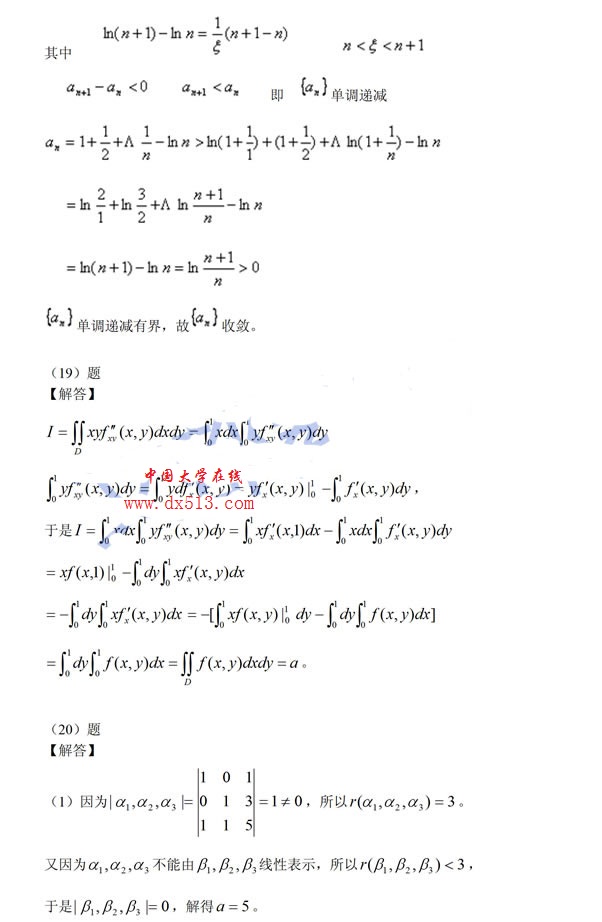 其中 ln(n+1)−ln n = 1/ξ (n+1−n) n<ξ<n+1
a_{n+1}−a_n <0 a_{n+1}<a_n 即 {a_n} 单调递减
a_n = 1+1/2+Λ 1/n −ln n >ln(1+1/1)+(1+1/2)+Λ ln(1+1/n)−ln n
=ln 2/1 +ln 3/2 +Λ ln (n+1)/n −ln n
=ln(n+1)−ln n=ln (n+1)/n >0
{a_n} 单调递减有界，故{a_n} 收敛。
（19）题
【解答】
I = ∬_D xyf″_{xy}(x,y)dxdy = ∫_0^1 xdx∫_0^1 yf″_{xy}(x,y)dy
∫_0^1 yf″_{xy}(x,y)dy = ∫_0^1 ydf′_x(x,y) = yf′_x(x,y)|_0^1 −∫_0^1 f′_x(x,y)dy，
中国大学在线
www.dx513.com
于是I = ∫_0^1 xdx∫_0^1 yf″_{xy}(x,y)dy = ∫_0^1 xf′_x(x,1)dx − ∫_0^1 xdx∫_0^1 f′_x(x,y)dy
= xf(x,1)|_0^1 −∫_0^1 dy∫_0^1 xf′_x(x,y)dx
= −∫_0^1 dy∫_0^1 xf′_x(x,y)dx = −[∫_0^1 xf(x,y)|_0^1 dy−∫_0^1 dy∫_0^1 f(x,y)dx]
= ∫_0^1 dy∫_0^1 f(x,y)dx = ∬_D f(x,y)dxdy = a 。
（20）题
【解答】
（1）因为|α_1,α_2,α_3|= |1 0 1; 0 1 3; 1 1 5| =1≠0，所以r(α_1,α_2,α_3)=3。
又因为α_1,α_2,α_3不能由β_1,β_2,β_3线性表示，所以r(β_1,β_2,β_3)<3，
于是|β_1,β_2,β_3|=0，解得a=5。